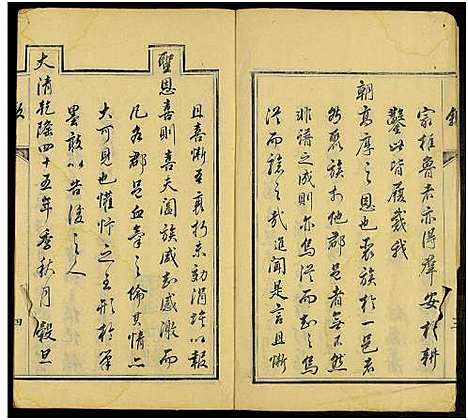 宗雖魯者亦得群安於耕
鑿此皆履戴我
朝高厚之恩也表族於一邑者
然聚族於他郡邑者無不然
非譜之成則亦烏從而知之烏
從而誌之哉進聞是言且慚
且喜慚至衰朽未効涓埃以報
聖恩喜則喜天闔族咸知感激而
凡各郡邑血氣之倫其情亦
大可見也懽忭之至形於筆
墨敢以告後之人
大清乾隆四十五年季秋月 穀旦